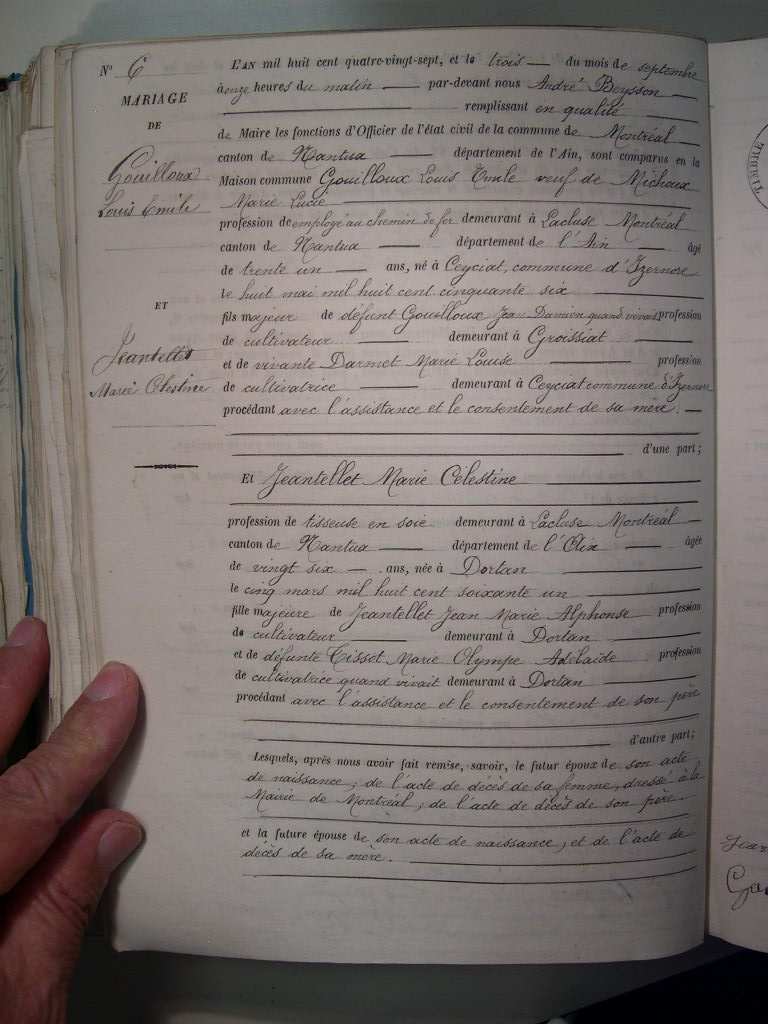 N° 6
MARIAGE
DE
Gouilloux
Louis Emile
ET
Jeantellet
Marie Célestine
L'AN mil huit cent quatre-vingt-sept, et le trois du mois de septembre
à onze heures du matin par-devant nous André Beysson
remplissant en qualité
de Maire les fonctions d'Officier de l'état civil de la commune de Montréal
canton de Nantua département de l'Ain, sont comparus en la
Maison commune Gouilloux Louis Emile veuf de Michaux
Marie Lucie
profession de employé au chemin de fer demeurant à Lacluse Montréal
canton de Nantua département de l'Ain âgé
de trente un ans, né à Ceyciat, commune d'Izernore
le huit mai mil huit cent cinquante six
fils majeur de défunt Gouilloux Jean Damien quand vivait profession
de cultivateur demeurant à Groissiat
et de vivante Darmet Marie Louise profession
de cultivatrice demeurant à Ceyciat commune d'Izernore
procédant avec l'assistance et le consentement de sa mère.
d'une part;
Et Jeantellet Marie Célestine
profession de tisseuse en soie demeurant à Lacluse Montréal
canton de Nantua département de l'Ain âgée
de vingt six ans, née à Dortan
le cinq mars mil huit cent soixante un
fille majeure de Jeantellet Jean Marie Alphonse profession
de cultivateur demeurant à Dortan
et de défunte Tisset Marie Olympe Adelaïde profession
de cultivatrice quand vivait demeurant à Dortan
procédant avec l'assistance et le consentement de son père
d'autre part;
Lesquels, après nous avoir fait remise, savoir, le futur époux de son acte
de naissance; de l'acte de décès de sa femme, dressé à la
Mairie de Montréal, de l'acte de décès de son père.
et la future épouse de son acte de naissance, et de l'acte de
décès de sa mère.
TIMBRE